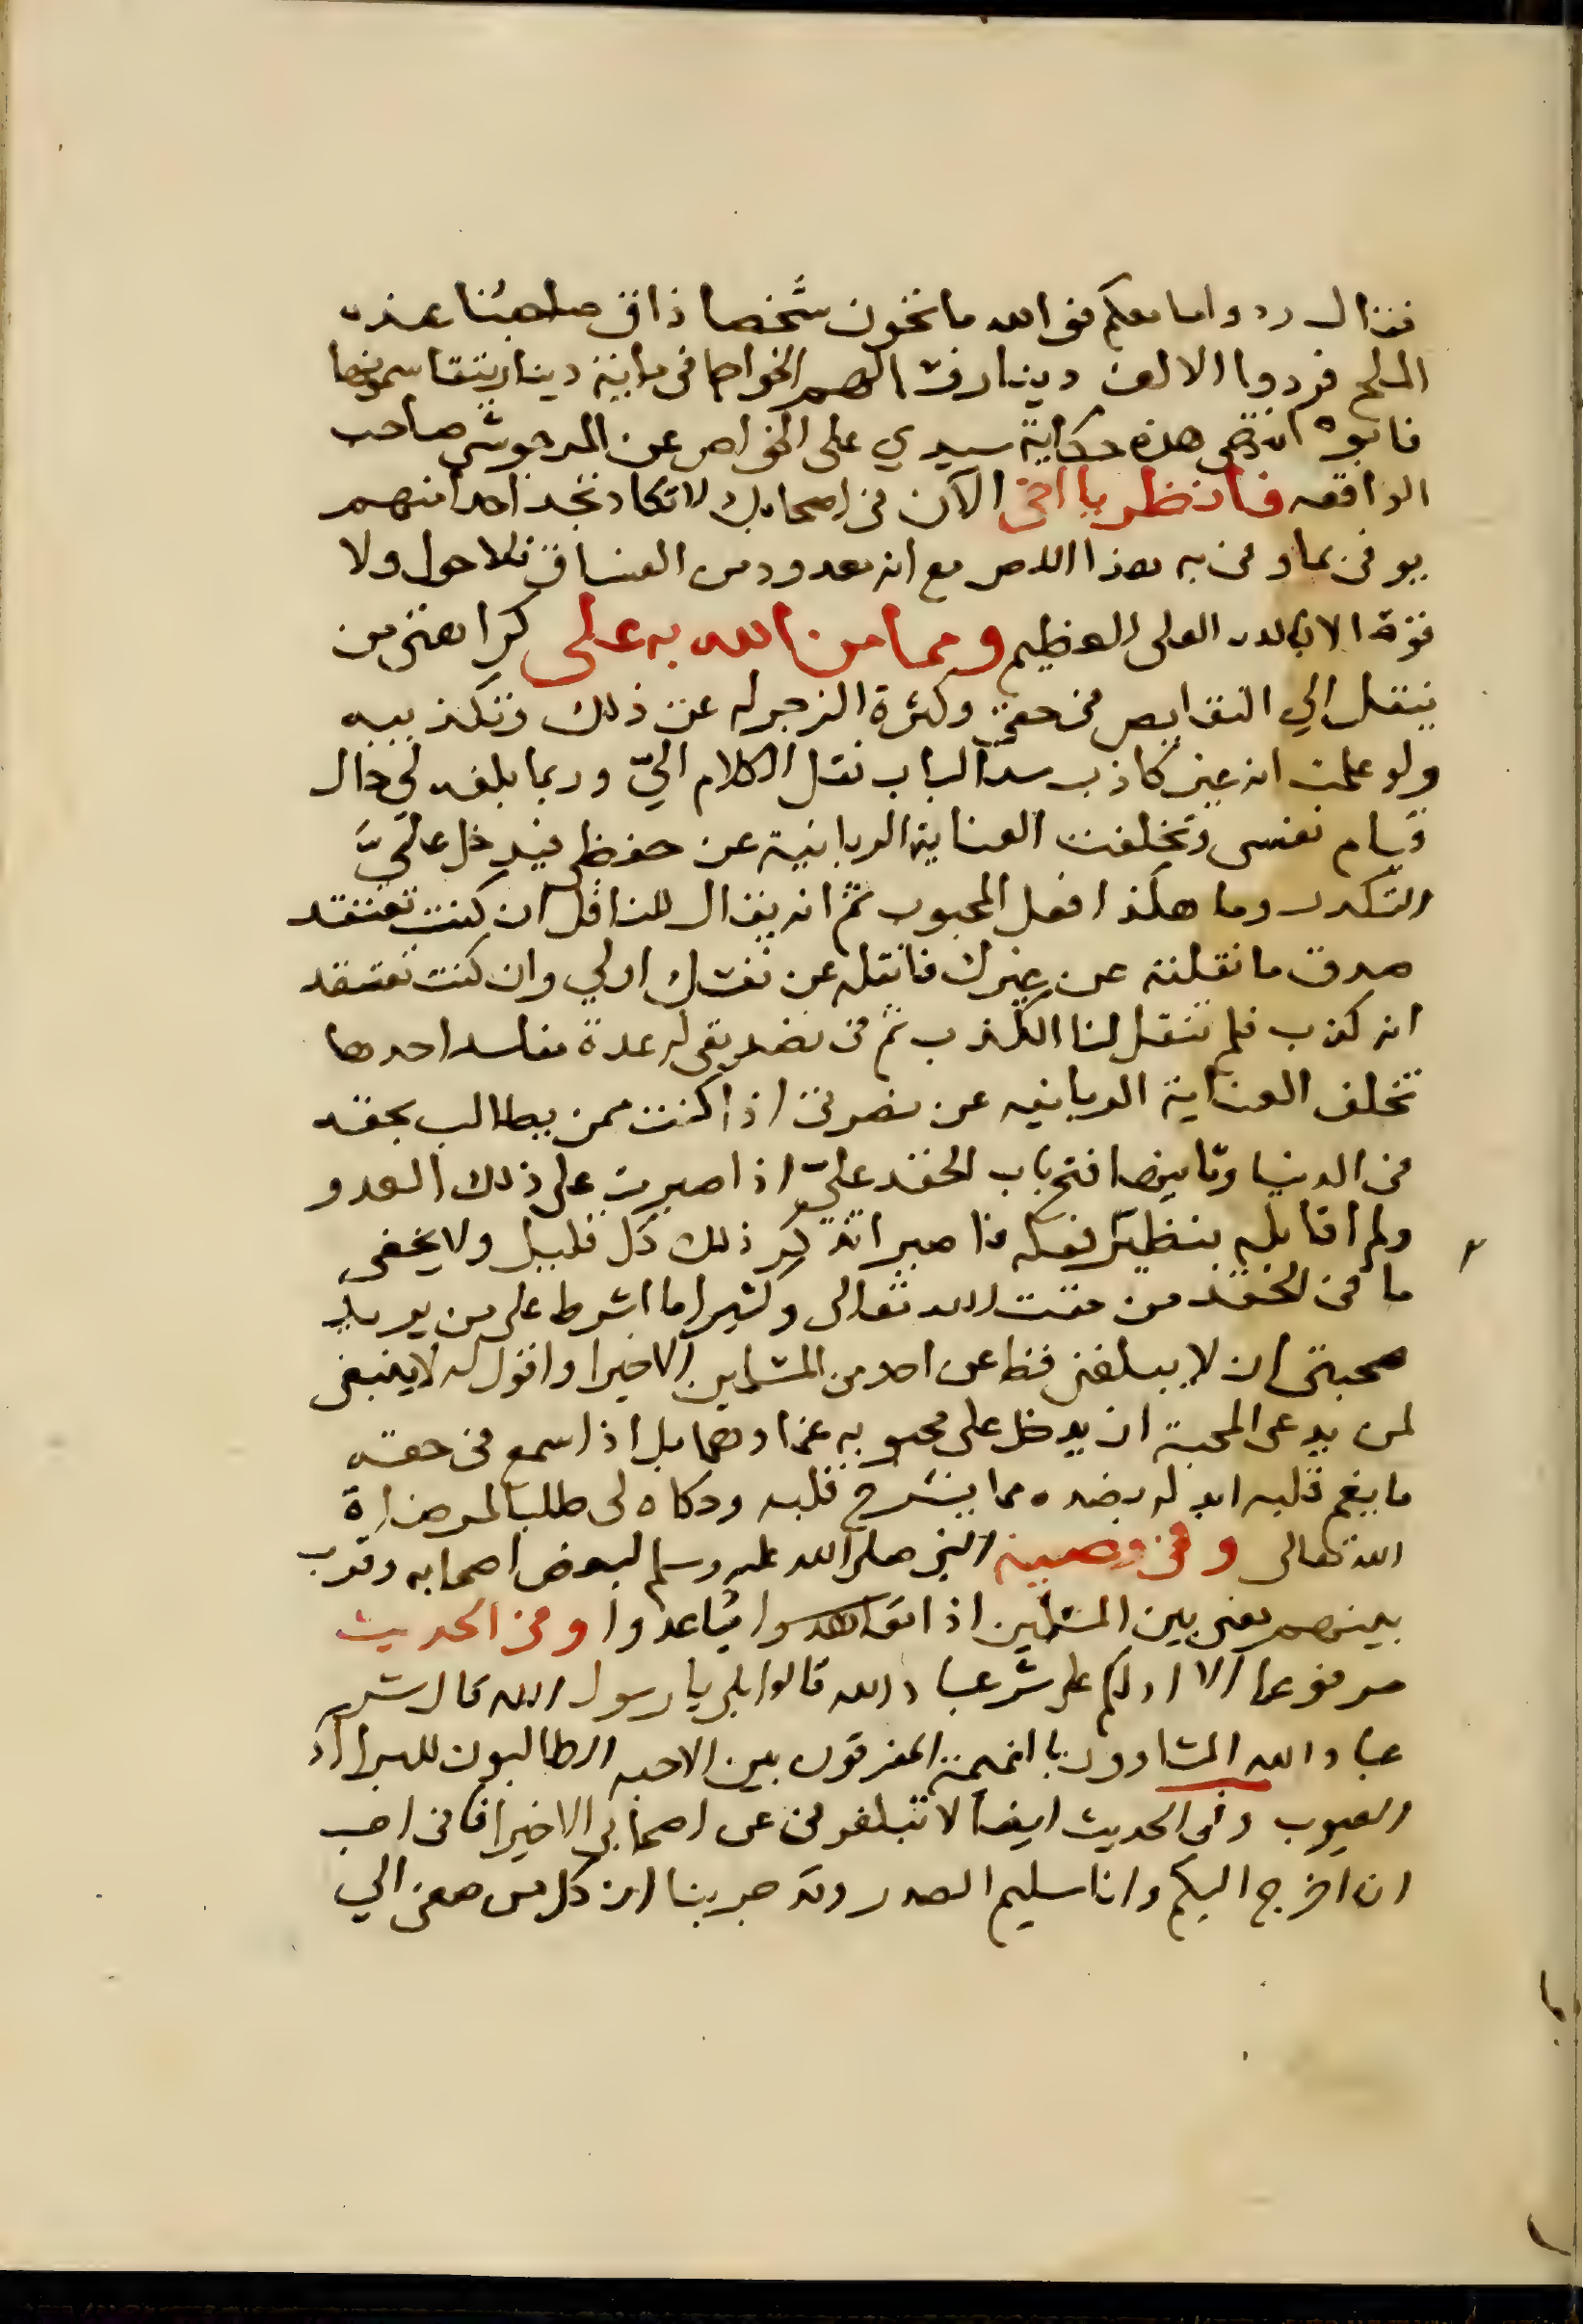 فقال ردوا ما معكم فو الله ما نخون شخصا ذاق صاحبنا عنده
الملح فردوا الالف دينار فشالهم الخواجا في ماية دينار يتقاسمونها
فابوا انتهى هذه حكاية سيدي على الخواص عن المرجوشي صاحب
الواقعه فانظر يا اخي الآن في اصحابك لا تكاد تجد احدا منهم
يوفي بما وفى به هذا اللص مع انه معدود من الفساق فلا حول ولا
قوة الا بالله العلى العظيم ومما من الله به على كراهتي من
ينقل الي النقايص في حقي وكثرة الزجر له عن ذلك وتكذيبه
ولو علمت انه غير كاذب سدا لباب نقل الكلام اليّ وربما بلغه لي حال
قيام نفسى وتخلفت العناية الربانية عن حفظي فيدخل عليّ
التكدر وما هكذا فعل المحبوب ثم انه يقال للناقل ان كنت تعتقد
صدق ما نقلته عن غيرك فانقله عن نفسك اولي وان كنت تعتقد
انه كذب فلم تنقل لنا الكذب ثم في تصديقي له عدة مفاسد احدها
تخلف العناية الربانيه عن نصرتي اذا كنت ممن يطالب بحقه
في الدنيا وثانيها فتح باب الحقد عليّ اذا صبرت على ذلك العدو
ولم اقابله بنظير فعله فاصير اتذكر ذلك كل قليل ولا يخفى
ما في الحقد من مقت الله تعالى وكثيرا ما اشرط على من يريد
صحبتى ان لا يبلغني قط عن احد من المسلمين الا خيرا واقول له لا ينبغي
لمن يدعى المحبة ان يدخل على محبوبه غما وهما بل اذا سمع في حقه
ما يغم قلبه ابدله بضده مما يشرح قلبه وحكاه لى طلبا لمرضاة
الله تعالى وفي وصية النبي صلى الله عليه وسلم لبعض اصحابه وقرب
بينهم يعنى بين المسلمين اذا تباعدوا وفي الحديث
مرفوعا الا ادلكم على شر عباد الله قالوا بلى يا رسول الله قال شر
عباد الله المشاوون بالنميمة المفرقون بين الاحبه الطالبون للبراآ
العيوب وفي الحديث ايضا لا تبلغوني عن اصحابي الا خيرا فاني احب
ان اخرج اليكم وانا سليم الصدر وقد جربنا ان كل من صغى الي